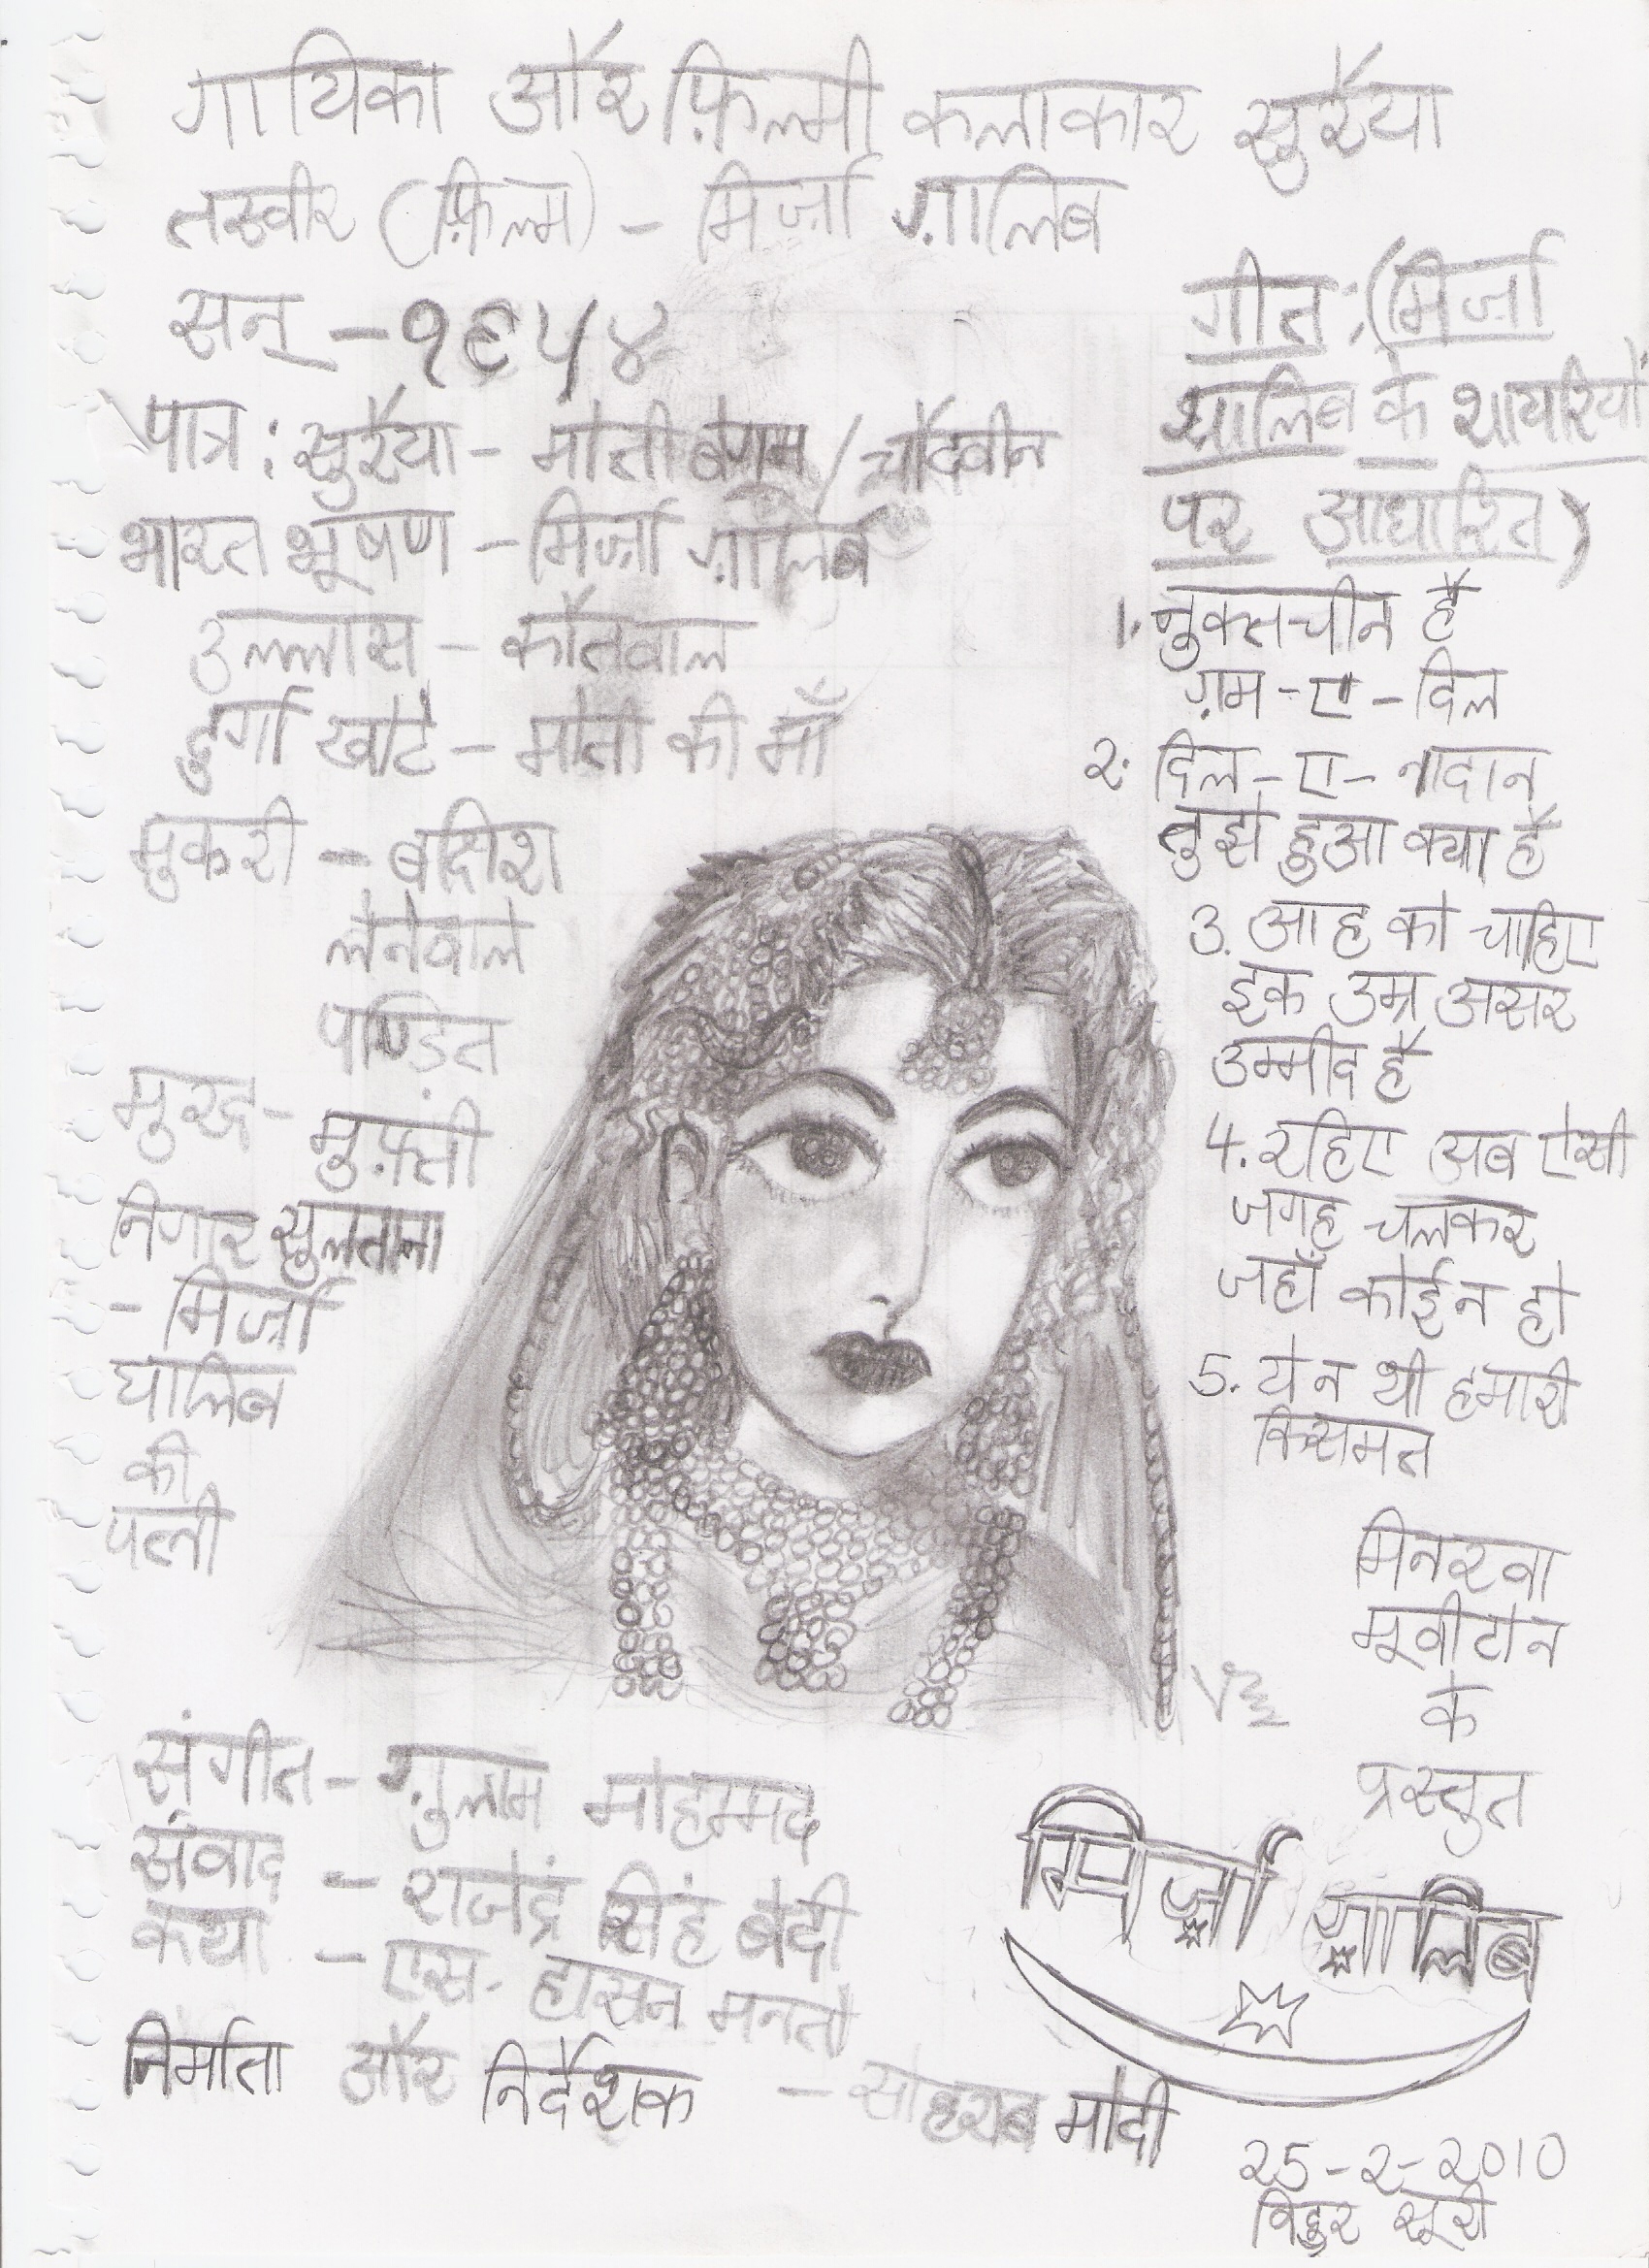 गायिका और फ़िल्मी कलाकार सुरैया
तस्वीर (फ़िल्म) - मिर्ज़ा ग़ालिब
सन् - १९५४
पात्र : सुरैया - मोती बेगम / चौदवीन
भारत भूषण - मिर्ज़ा ग़ालिब
उल्लास - कौतवाल
दुर्गा खोटे - मोती की माँ
मुकरी -
लेनेवाले
पाण्ड़ित
मुफ़्ती
निगार सुलताना
- मिर्ज़ा
घालिब
की
पत्नी
गीत : (मिर्ज़ा
के शायरियों
पर आधारित)
1. नुक्तचीन है
ग़म-ए-दिल
२. दिल-ए-नादान
तुझे हुआ क्या है
3. आह को चाहिए
इक उम्र असर
उम्मीद है
4. रहिए अब ऐसी
जगह चलकर
जहाँ कोई न हो
5. ये न थी हमारी
क़िसमत
मिनरवा
मूवीटोन
के
प्रस्तुत
मिर्ज़ा ग़ालिब
संगीत - ग़ुलाम मोहम्मद
संवाद - राजेंद्र सिंह बेदी
कथा - एस. हासन मनतो
निर्माता और निर्देशक - सोहराब मोदी
२5-२-२010
विदुर सूरी